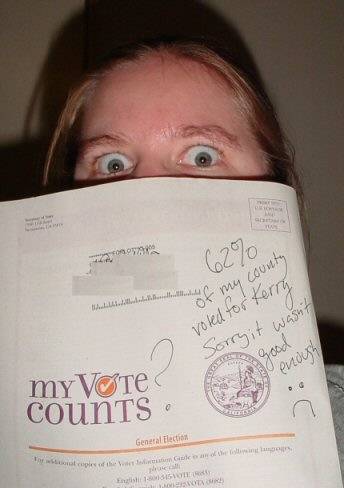 Secretary of State
62%
of my county
voted for Kerry
Sorry it wasn't
good
enough
: (
my VOTE ?
COUNTS
CALIFORNIA
General Election
For additional copies of the Voter Information Guide in any of the following languages,
please call:
English: 1-800-345-VOTE (8683)
1-800-232-VOTA (8682)